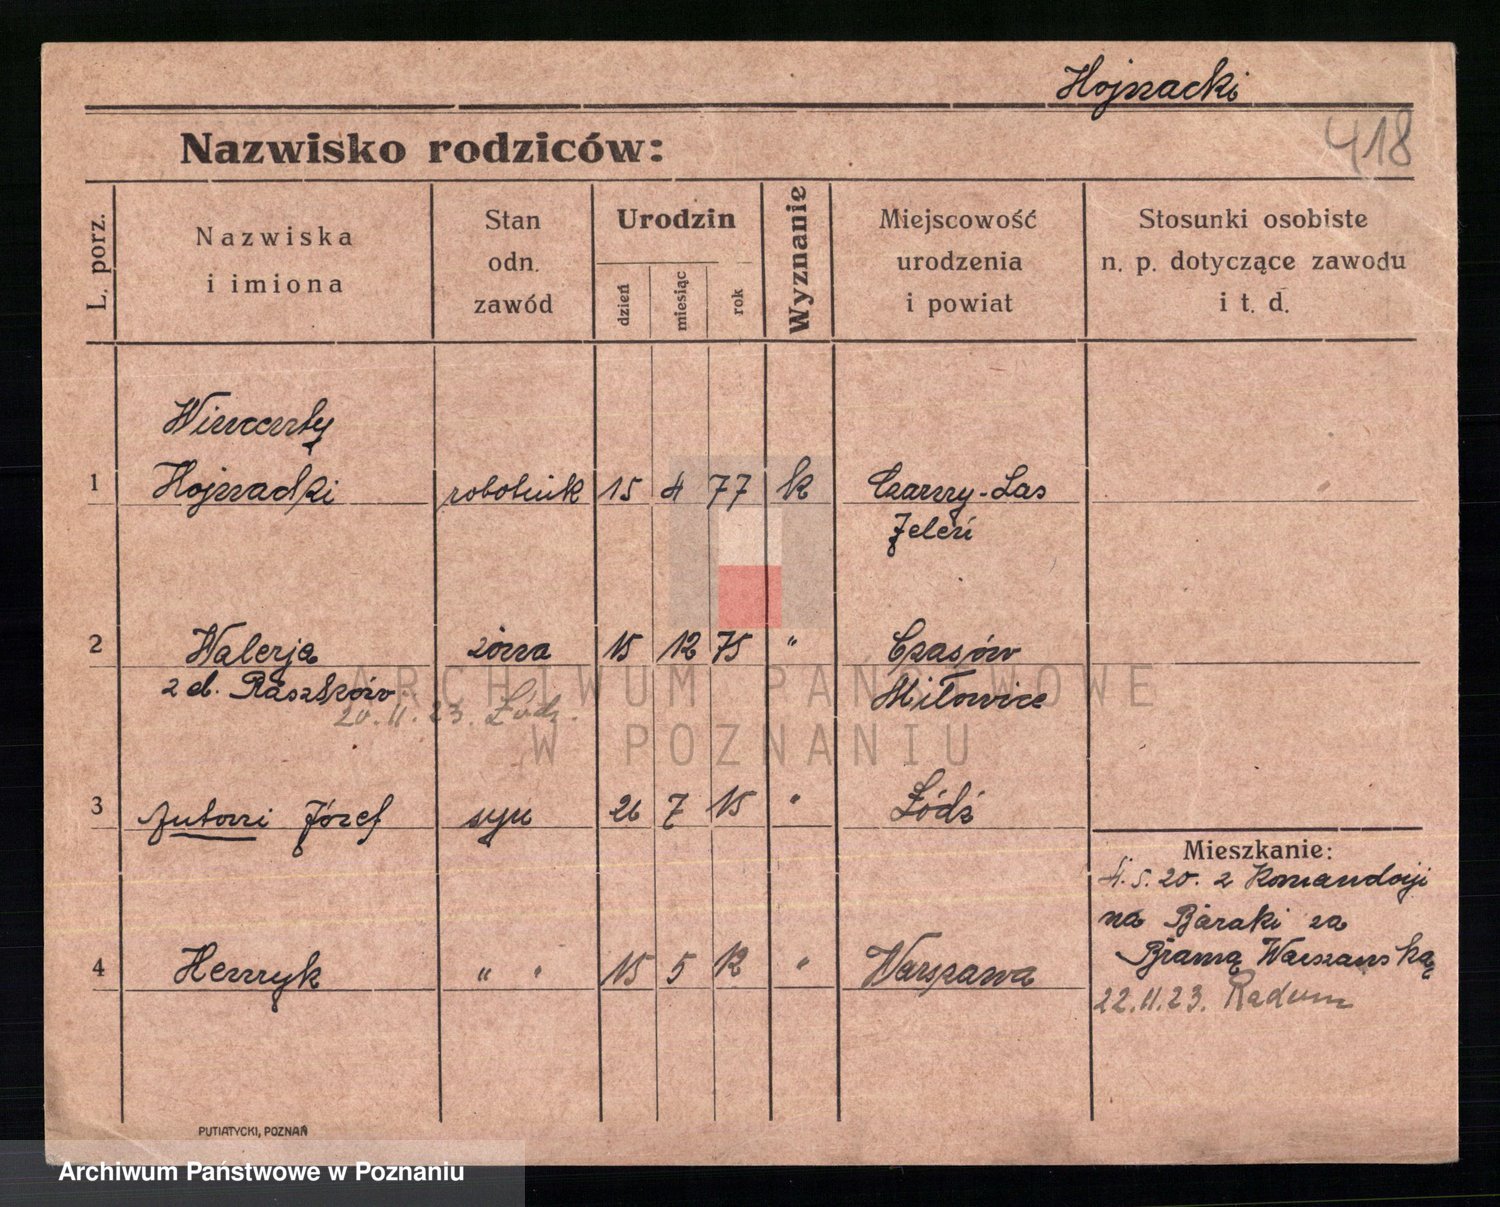 Hojnacki
418
Nazwisko rodziców:
L. porz.
Nazwiska
i imiona
Stan
odn.
zawód
Urodzin
dzień
miesiąc
rok
Wyznanie
Miejscowość
urodzenia
i powiat
Stosunki osobiste
n. p. dotyczące zawodu
i t. d.
Wincenty
1 Hojnacki robotnik 15 4 77 k Czarny-Las
Zeleń
2 Walerja żona 15 12 75 " Czasów
z d. Raszków Miłowice
20.11.23. Łódz.
3 Antoni Józef syn 26 7 15 " Łódź
Mieszkanie:
4.5.20. z Komandorji
na Baraki za
Bramą Warszawską
4 Henryk " " 15 5 12 " Warszawa
22.11.23. Radom
PUTIATYCKI, POZNAŃ
ARCHIWUM PAŃSTWOWE
W POZNANIU
Archiwum Państwowe w Poznaniu